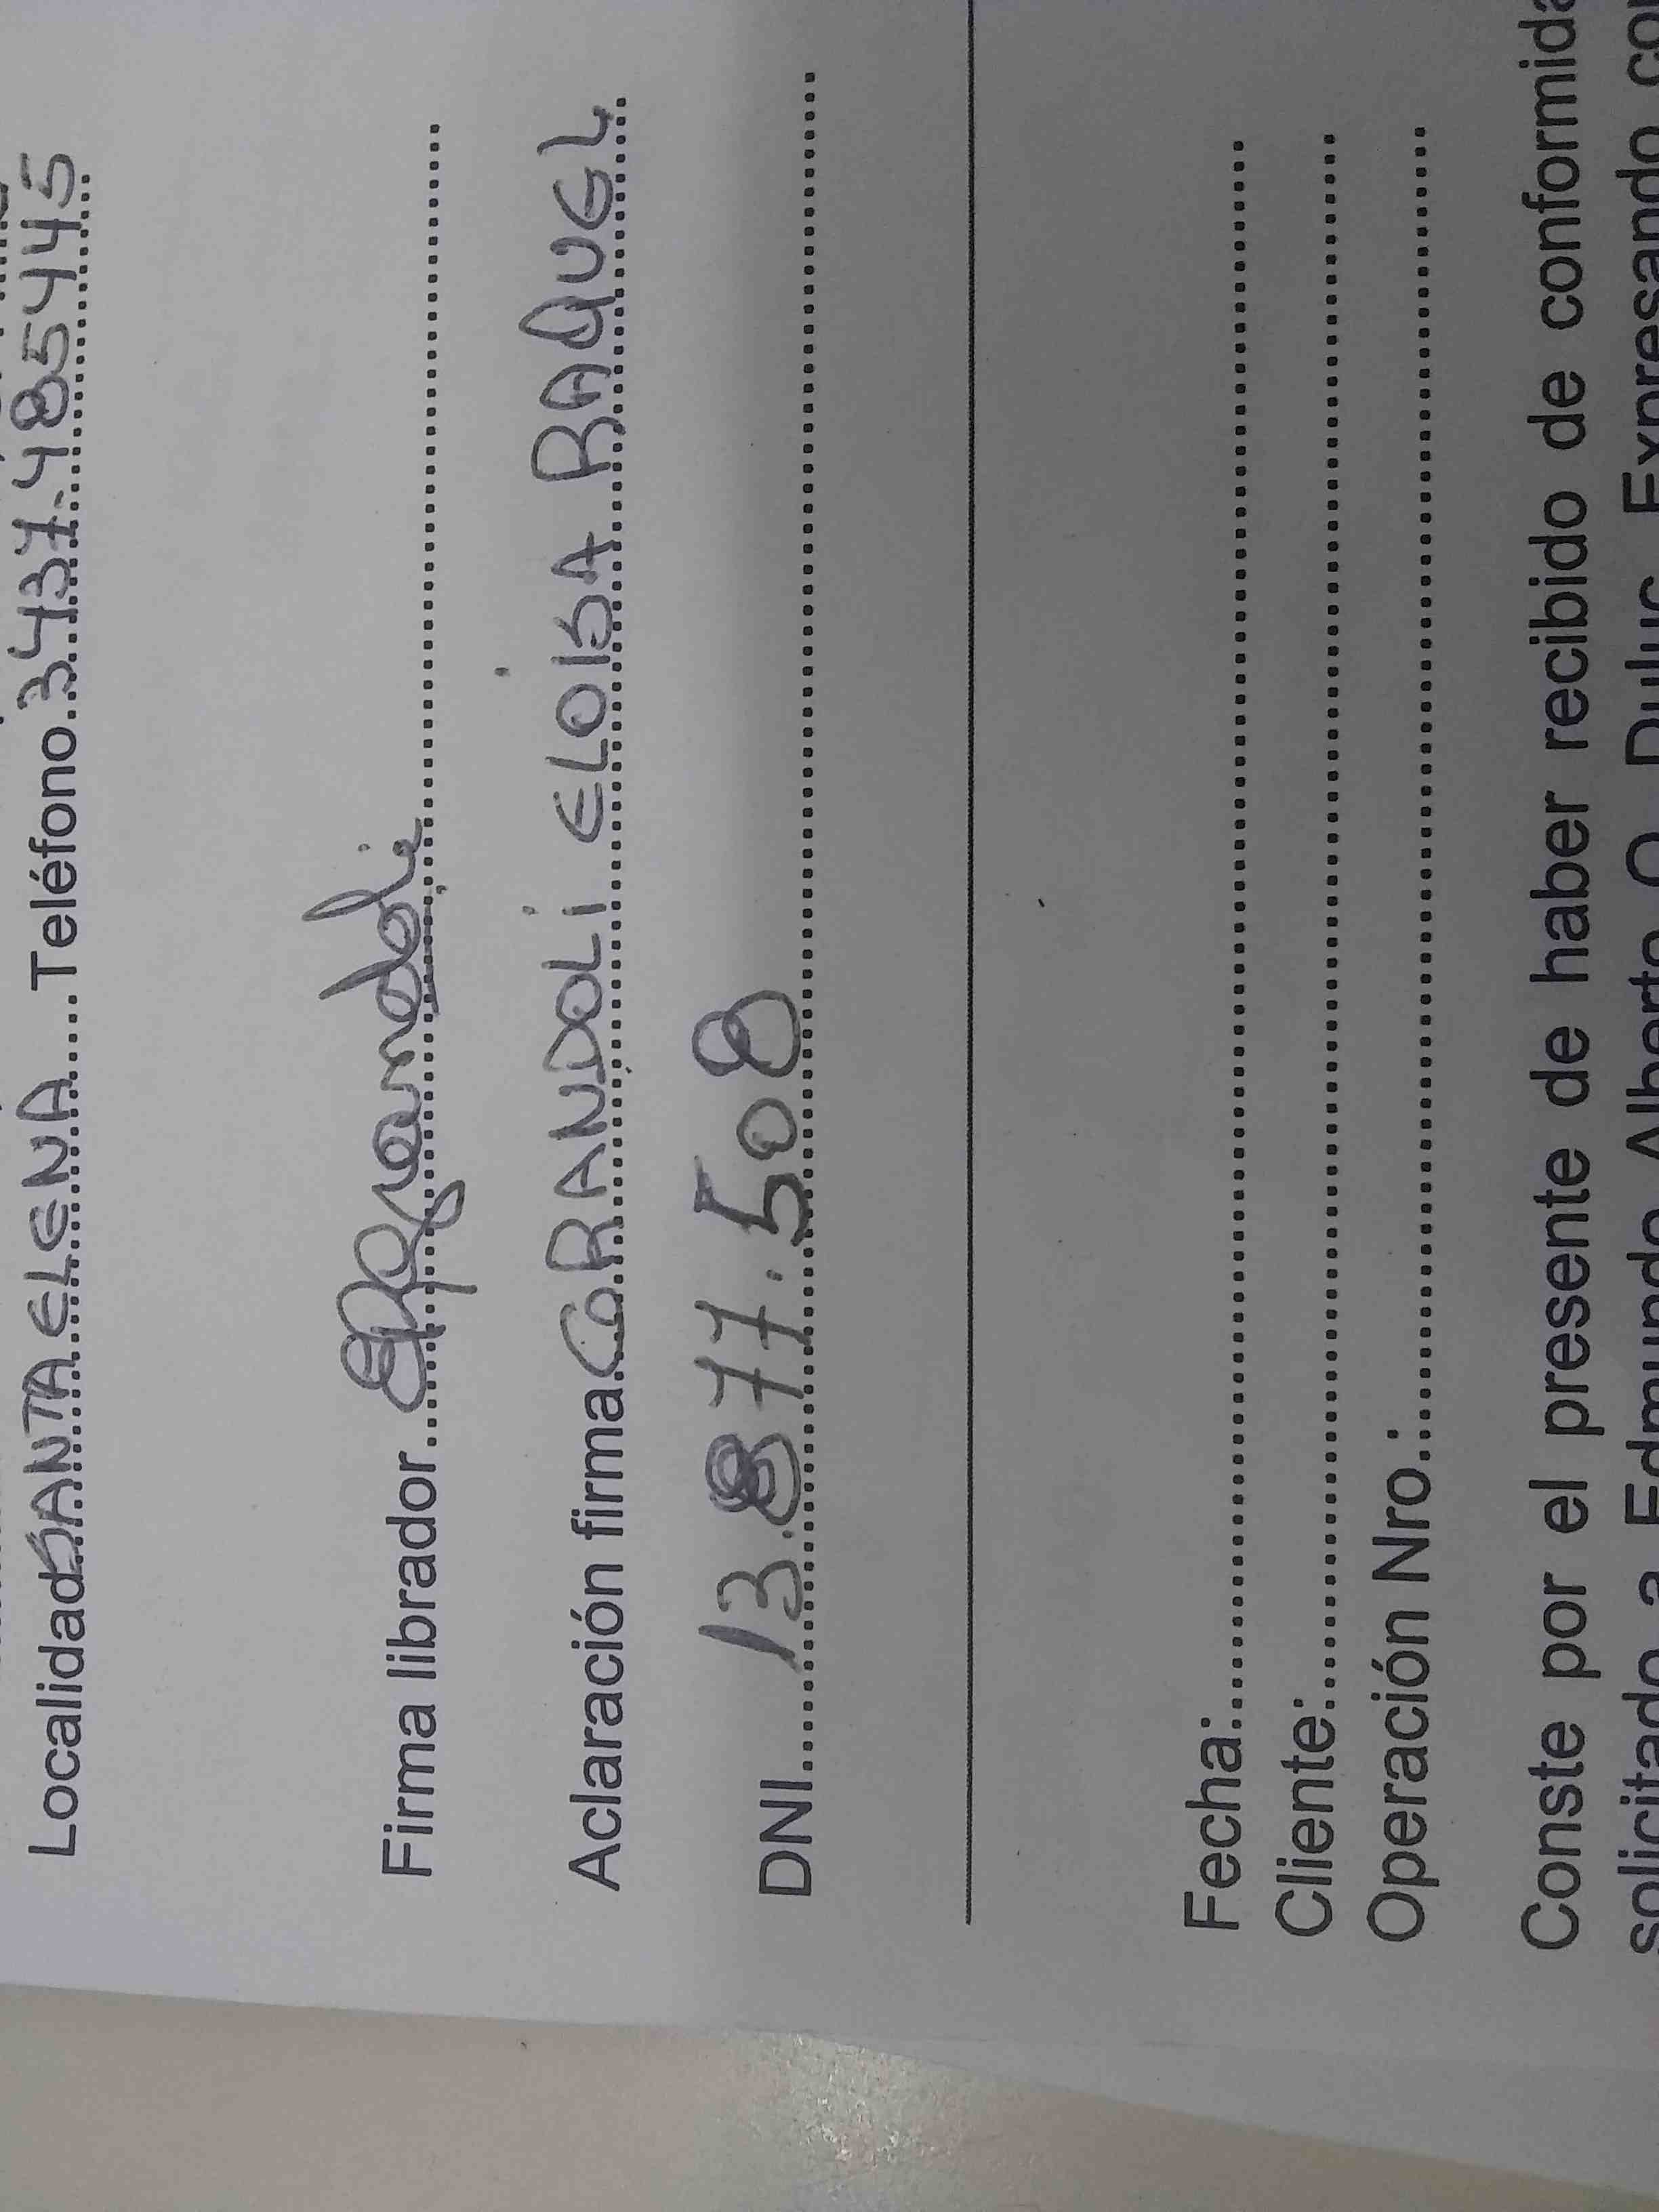 Localidad SANTA ELENA Teléfono 3437-485445
Firma librador
Aclaración firma GRANDOLI ELOISA RAQUEL
DNI 13.877.508
Fecha:
Cliente:
Operación Nro.:
Conste por el presente de haber recibido de
solicitado a Edmundo Alberto O. Expresando